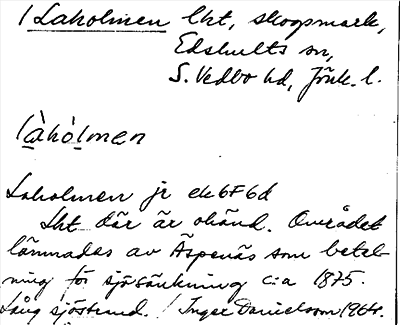 / Laholmen lht, skogsmark,
Edshults sn,
S. Vedbo hd, Jönk. l.
làhòlmen
Laholmen jr ek 6F6d
Lht där är okänd. Området
lämnades av Äspenäs som betal-
ning för sjösänkning c:a 1875.
Lång sjöstrand. / Inger Danielsson 1964.